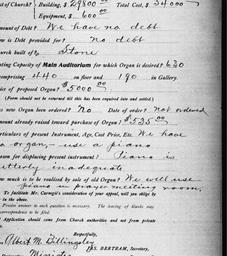 of Church? Building, $29800.00 Total Cost, $34000.00
Equipment, $600.00
mount of Debt? We have no debt
ow is Debt provided for? no debt
hurch built of? Stone
ating Capacity of Main Auditorium for which Organ is desired? 630
omprising 440 on floor and 190 in Gallery.
rice of proposed Organ? $5000.00
(Form should not be returned till this has been enquired into and settled.)
s new Organ been ordered? no Date of order? not ordered
mount already raised toward purchase of Organ? $525.00
articulars of present Instrument, Age, Cost Price, Etc. We have
no organ, use a piano
eason for displacing present instrument? Piano is
utterly inadequate
ow much is to be realized by sale of old Organ? We will use
piano in prayer meeting room.
To facilitate Mr. Carnegie's consideration of your appeal, will you oblige by
in the above.
Precise answer to each question is necessary. The leaving of blanks may
correspondence to be filed.
Application should come from Church authorities and not from private
Respectfully,
Albert M. Billingsley
JAS. BERTRAM, Secretary.